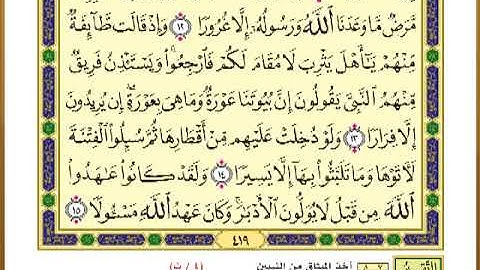 مَّرَضٌ مَّا وَعَدَنَا ٱللَّهُ وَرَسُولُهُۥٓ إِلَّا غُرُورًا ١٢ وَإِذْ قَالَت طَّآئِفَةٌ
مِّنْهُمْ يَٰٓأَهْلَ يَثْرِبَ لَا مُقَامَ لَكُمْ فَٱرْجِعُوا۟ ۚ وَيَسْتَـْٔذِنُ فَرِيقٌ
مِّنْهُمُ ٱلنَّبِىَّ يَقُولُونَ إِنَّ بُيُوتَنَا عَوْرَةٌ وَمَا هِىَ بِعَوْرَةٍ ۖ إِن يُرِيدُونَ
إِلَّا فِرَارًا ١٣ وَلَوْ دُخِلَتْ عَلَيْهِم مِّنْ أَقْطَارِهَا ثُمَّ سُئِلُوا۟ ٱلْفِتْنَةَ
لَءَاتَوْهَا وَمَا تَلَبَّثُوا۟ بِهَآ إِلَّا يَسِيرًا ١٤ وَلَقَدْ كَانُوا۟ عَٰهَدُوا۟
ٱللَّهَ مِن قَبْلُ لَا يُوَلُّونَ ٱلْأَدْبَٰرَ ۚ وَكَانَ عَهْدُ ٱللَّهِ مَسْـُٔولًا ١٥
٤١٩
أخذ الميثاق من النبيين